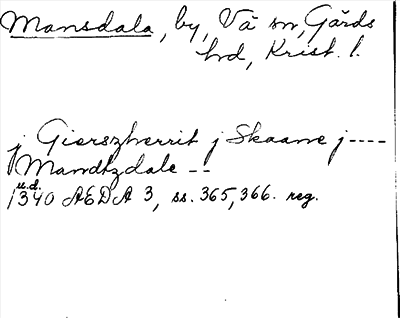 Mansdala, by, Vä sn, Gärds
hd, Krist. l.
j Gierszherrit j Skaane j ----
Mandtzdale --
u.d.
1340 AEDA 3, ss. 365, 366. reg.